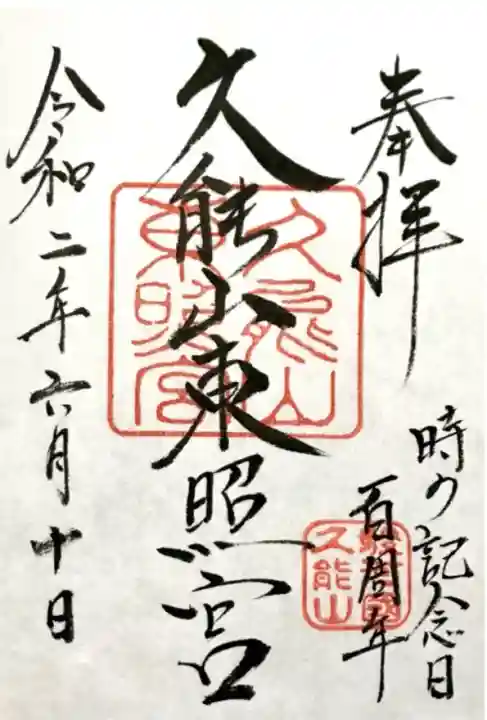 奉拝
時の記念日
百周年
久能山東照宮
久能山
東照宮
久能山
令和二年六月十日